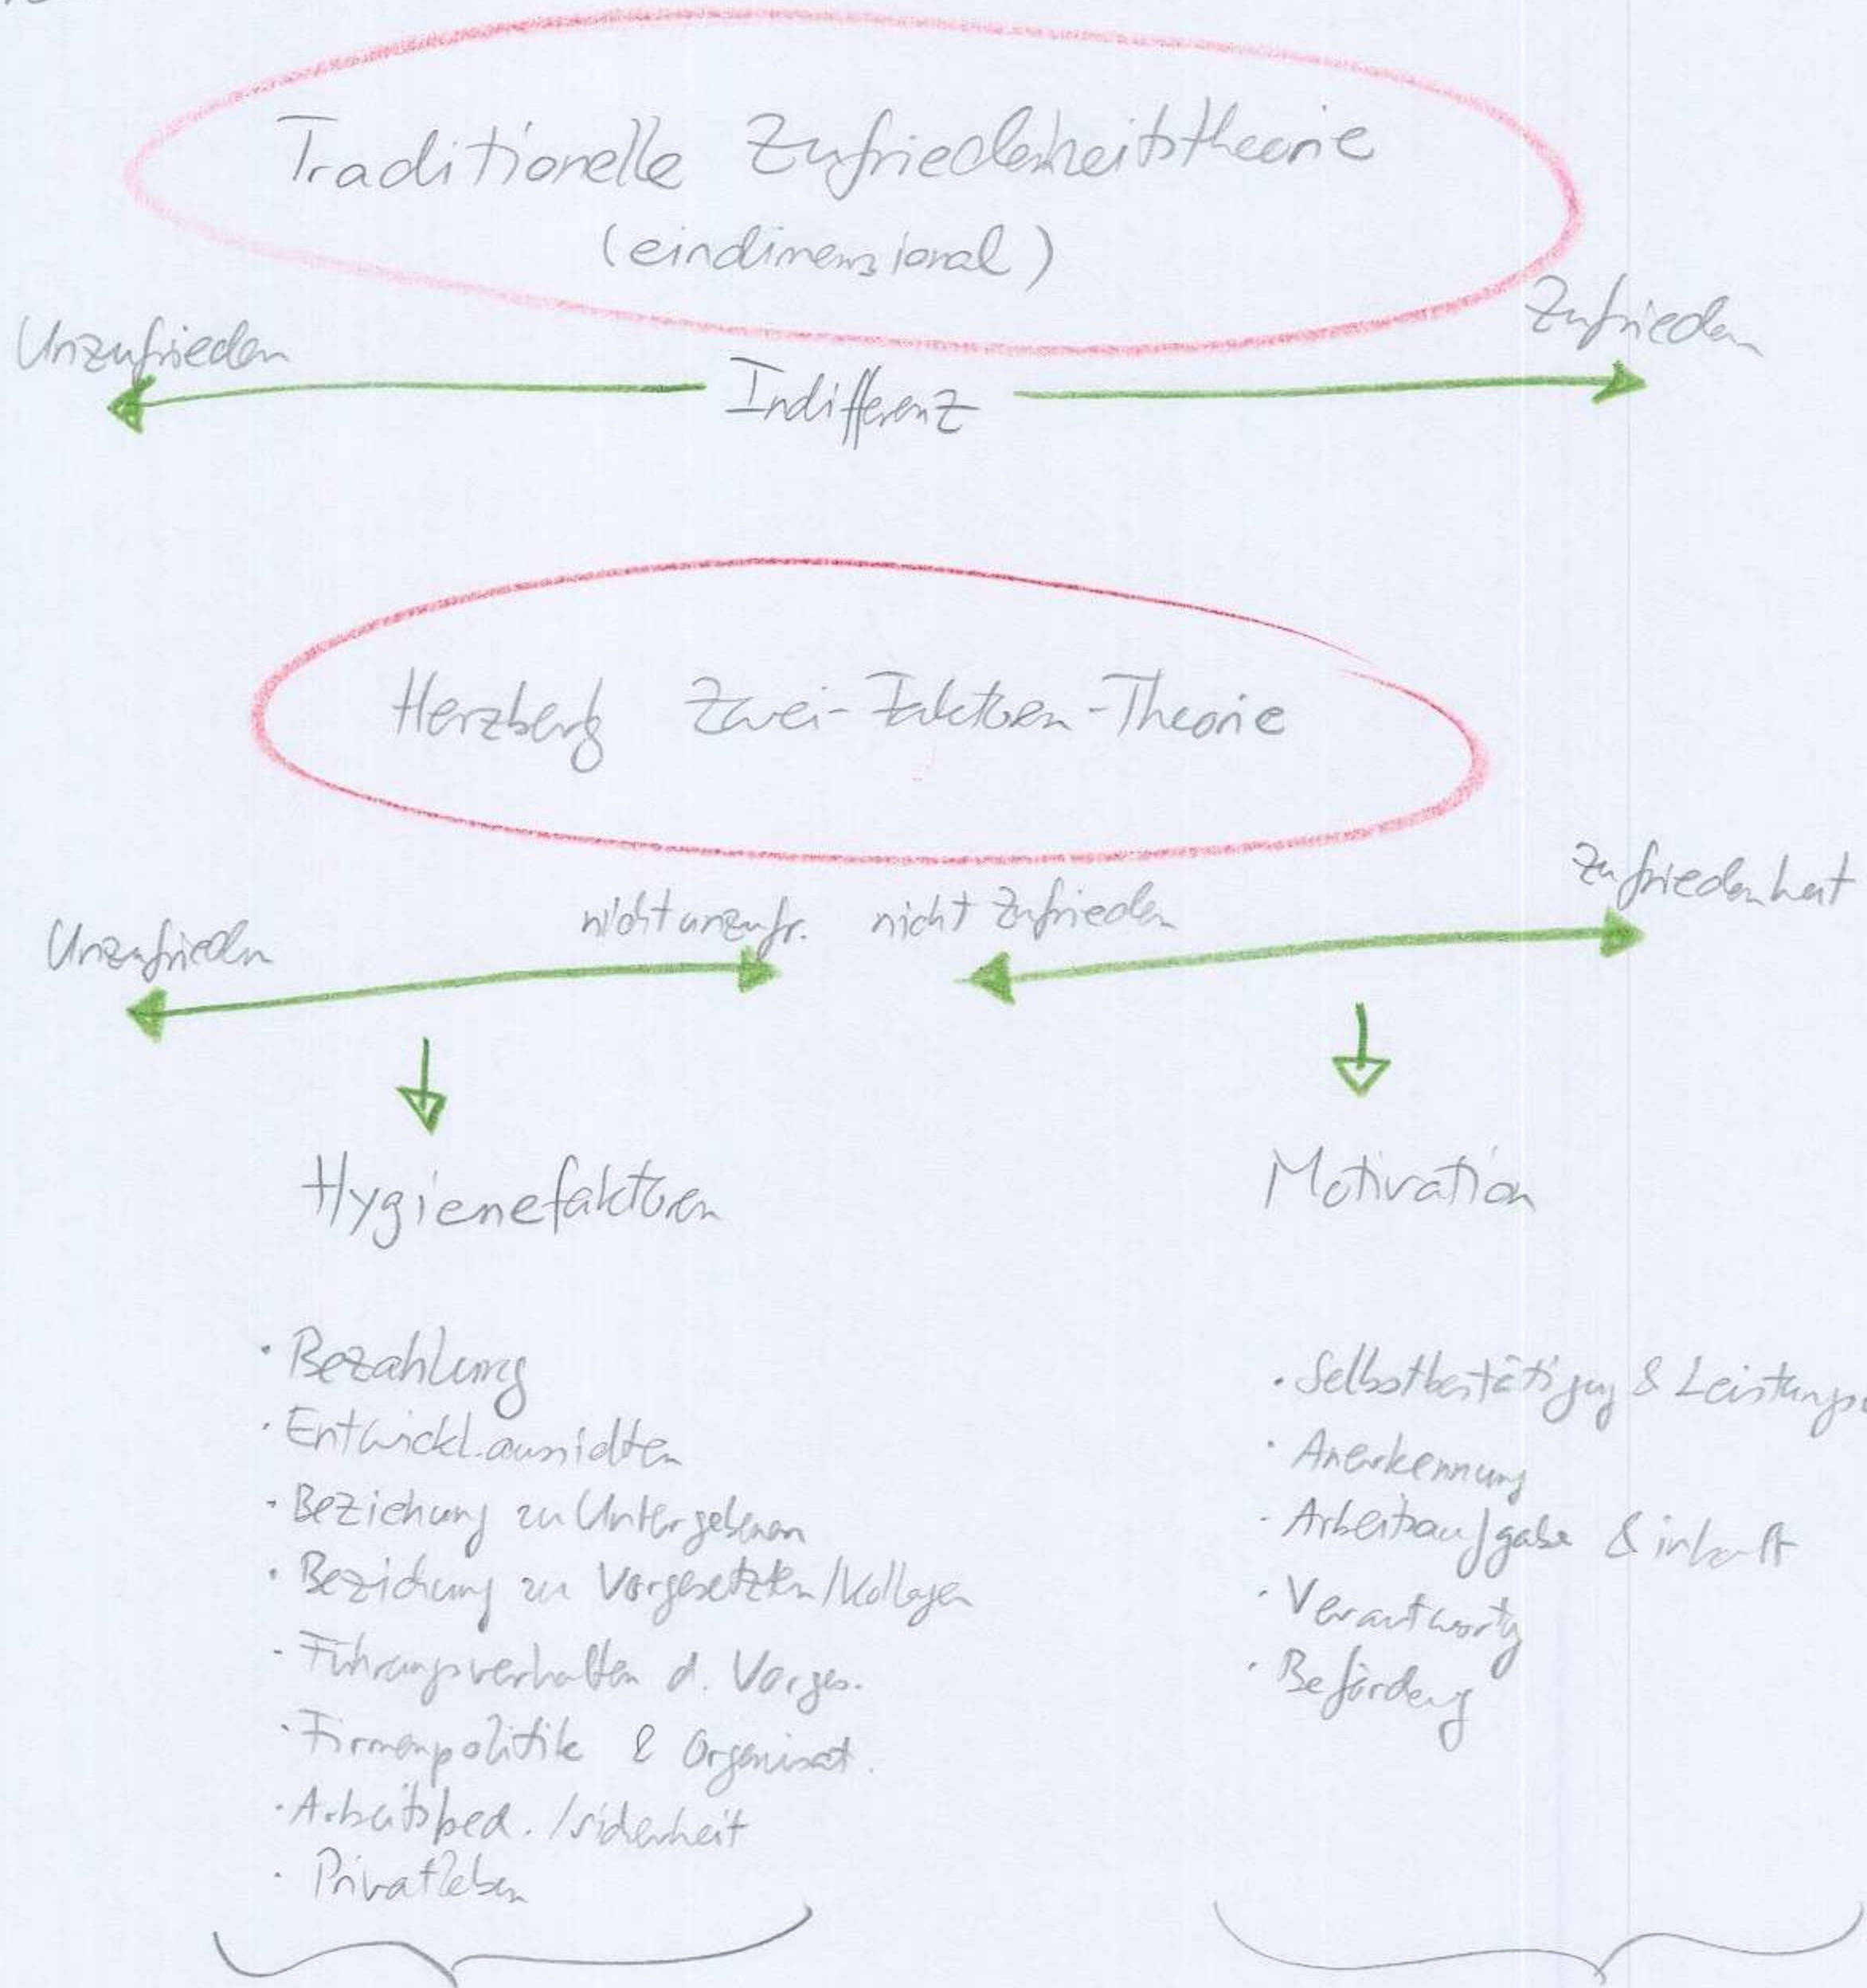 Traditionelle Zufriedenheitstheorie
(eindimensional)
Unzufrieden
Indifferenz
Zufrieden
Herzberg Zwei-Faktoren-Theorie
Unzufrieden
nicht unzufr.
nicht Zufrieden
Zufriedenheit
Hygienefaktoren
· Bezahlung
· Entwickl.aussichten
· Beziehung zu Untergebenen
· Beziehung zu Vorgesetzten/Kollegen
· Führungsverhalten d. Vorges.
· Firmenpolitik & Organisat.
· Arbeitsbed. /sicherheit
· Privatleben
Motivation
· Selbstbestätigung & Leistungs
· Anerkennung
· Arbeitsaufgabe & inhalt
· Verantwortg
· Beförderg